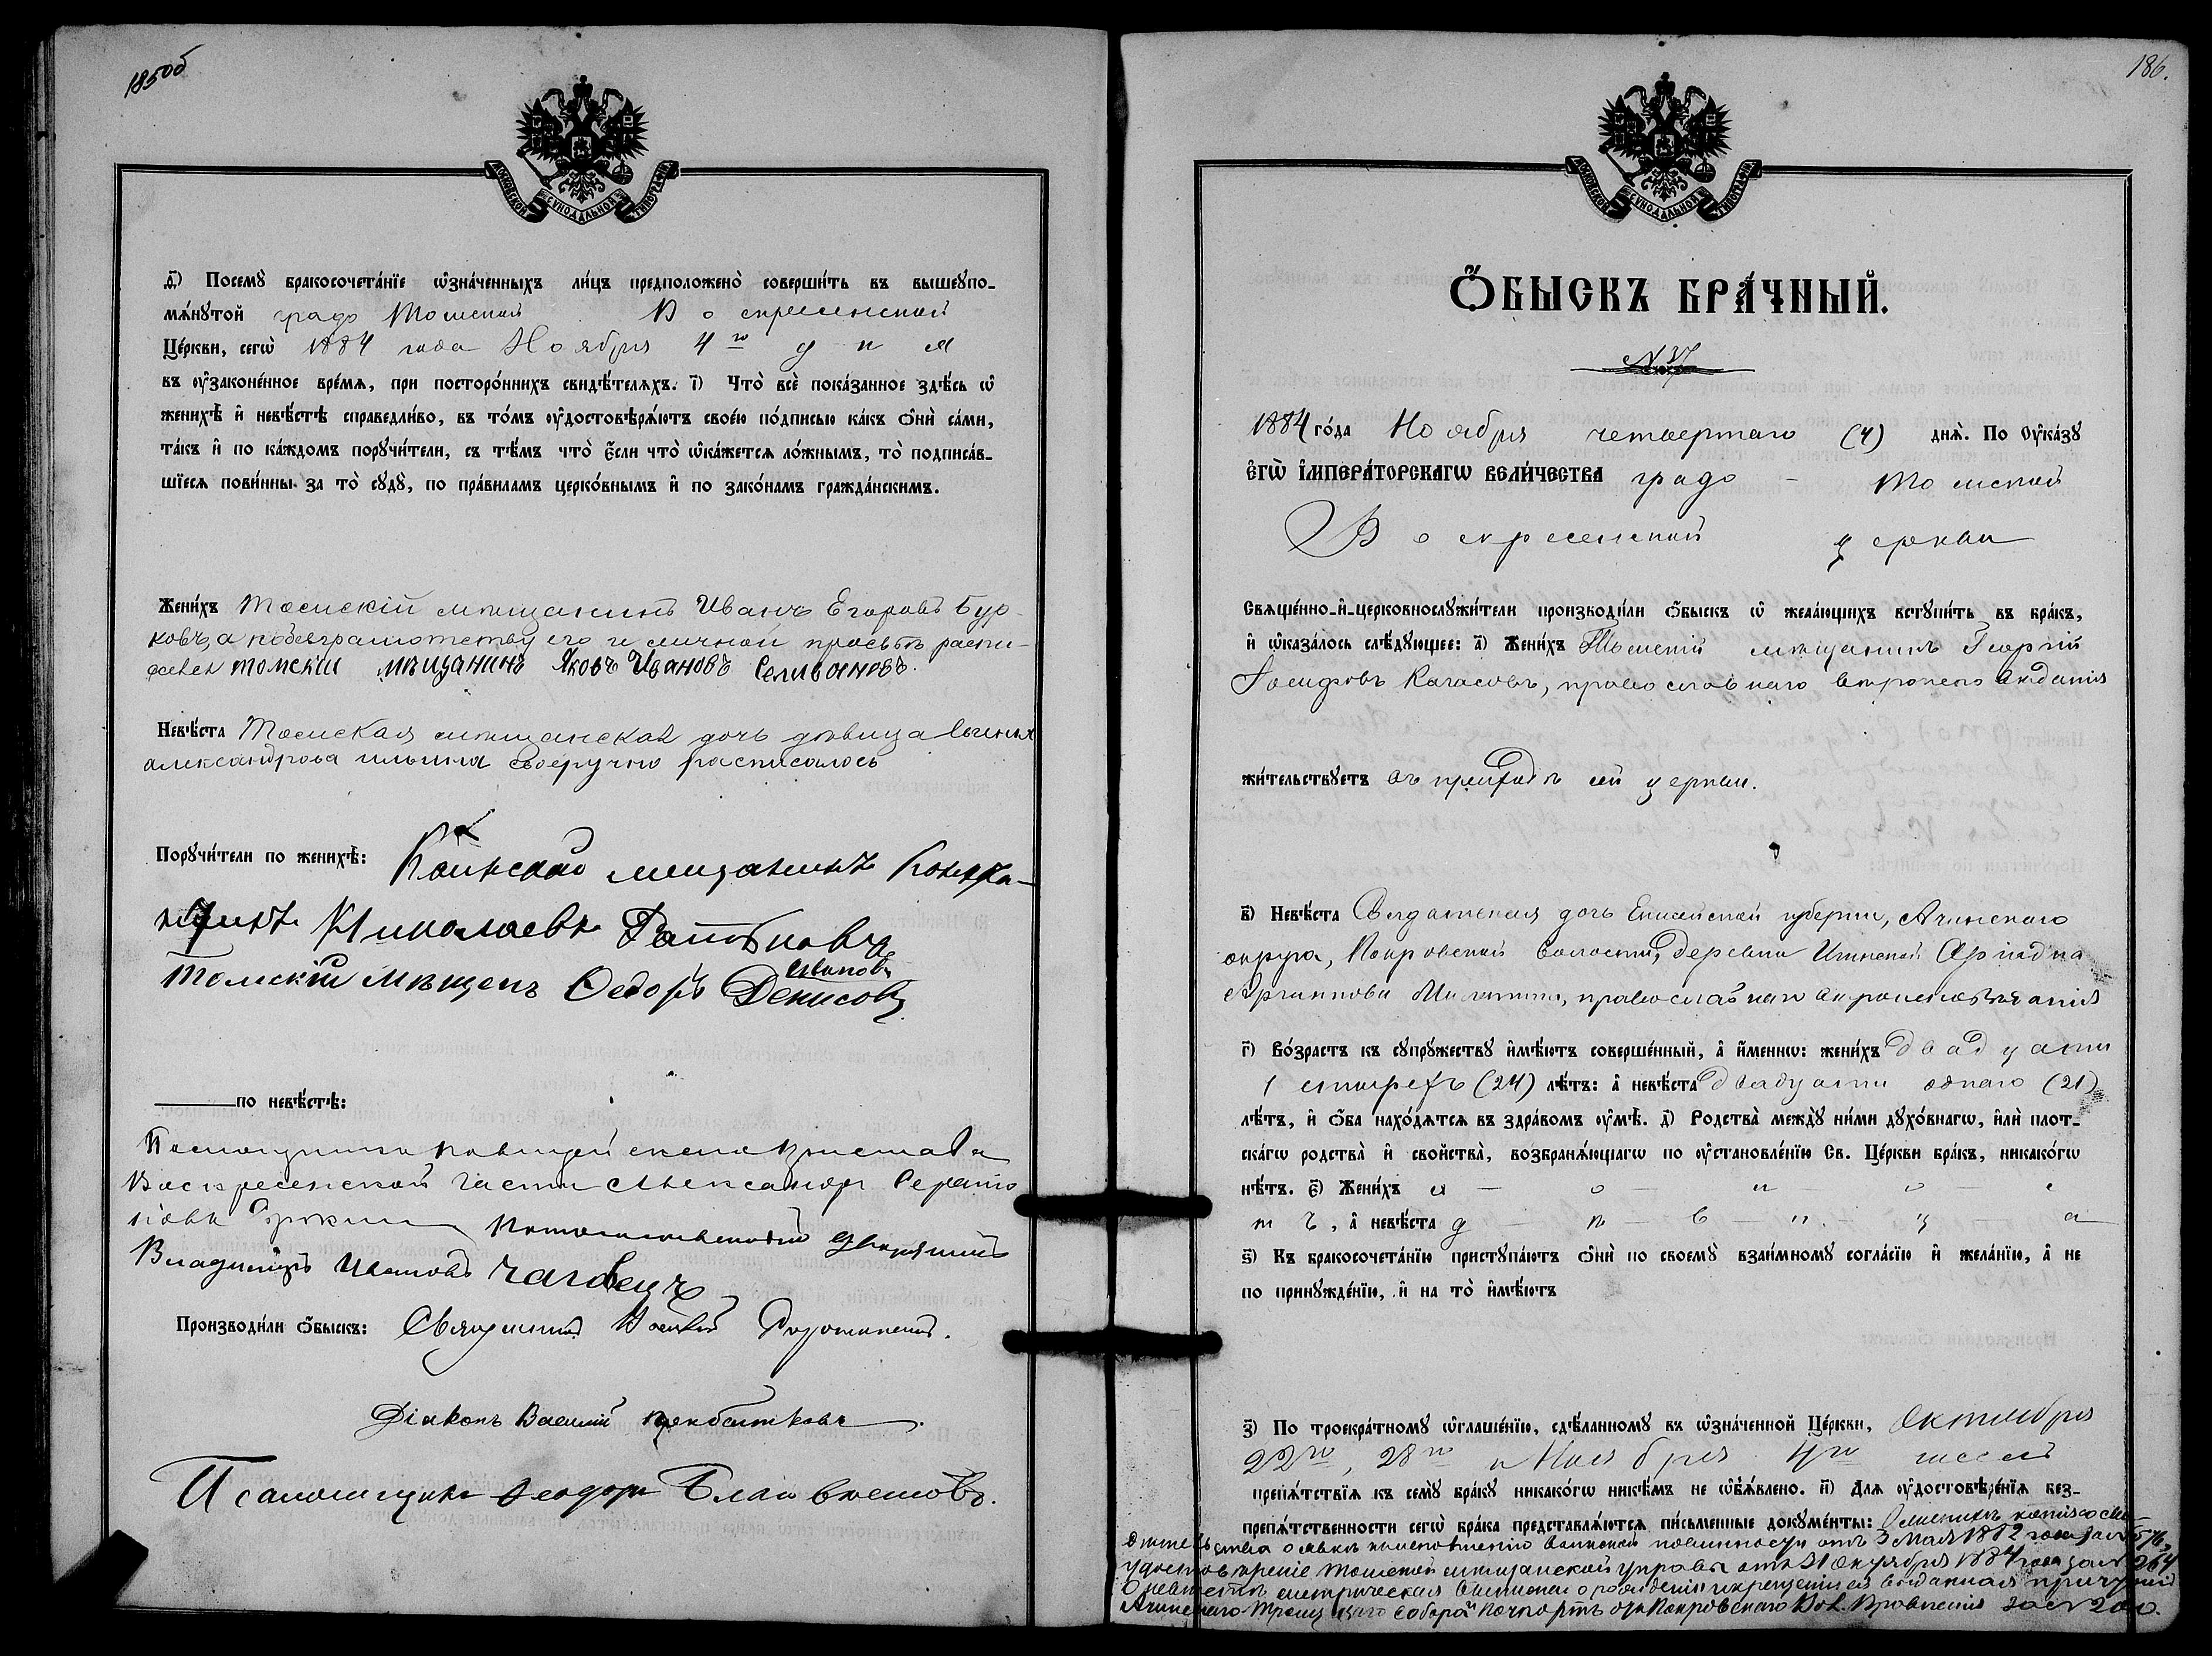 185об
МОСКОВСКОЙ СѴНОДАЛЬНОЙ ТИПОГРАФІИ
д҃) Посемꙋ̀ бракосочета́нїе ѡ҆зна́ченныхъ ли́цъ предположено̀ соверши́ть въ вышеꙋпо-
мѧ́нꙋтой градо Томской Воскресенской
Це́ркви, сегѡ̀ 1884 года Ноября 4го дня
въ ᲂу҆законе́нное вре́мѧ, при посторо́ннихъ свидѣ́телѧхъ. і҃) Что̀ всѐ пока́занное здѣ́сь ѡ҆
женихѣ̀ и҆ невѣ́стѣ справедли́во, въ то́мъ ᲂу҆достовѣрѧ́ютъ свое́ю по́дписью ка́къ ѻ҆нѝ са́ми,
та́къ и҆ по ка́ждомъ порꙋчи́тели, съ тѣ́мъ что̀ є҆́сли что̀ ѡ҆ка́жетсѧ ло́жнымъ, то̀ подписа́в-
шїесѧ пови́нны за то̀ сꙋдꙋ̀, по пра́виламъ церко́внымъ и҆ по зако́намъ гражда́нскимъ.
Жени́хъ Томскій мѣщанинъ Иванъ Егоровъ Бур-
ковъ, а по безграмотству его и личной просьбѣ распи-
сался томскій мѣщанинъ Яковъ Ивановъ Селивановъ.
Невѣ́ста Томская мѣщанская дочь дѣвица
александрова ильина своеручно расписалось
Порꙋчи́тели по женихѣ̀: Каинскій мещанинъ
Николаевъ
Томскій мѣщенъ Ѳедоръ Ивановъ Денисовъ
по невѣ́стѣ:
Помощника пристава
Воскресенской части Александръ
потомственный дворянинъ
Владиміръ Ивановъ Чаговецъ
Производи́ли ѻ҆́быскъ: Священникъ
Діаконъ Василій
Псаломщикъ Ѳеодоръ Благовестовъ.
186.
МОСКОВСКОЙ СѴНОДАЛЬНОЙ ТИПОГРАФІИ
Ѻ҆́БЫСКЪ БРА́ЧНЫЙ.
N 37
1884 го́да Ноября четвертаго (4) днѧ̀. По Оу҆ка́зꙋ
Є҆ГѠ̀ І҆МПЕРА́ТОРСКАГѠ ВЕЛИ́ЧЕСТВА градо - Томской
Воскресенской церкви
Свѧще́нно-и҆-церковнослꙋжи́тели производи́ли ѻ҆́быскъ ѡ҆ жела́ющихъ встꙋпи́ть въ бра́къ,
и҆ ѡ҆каза́лось слѣ́дꙋющее: а҃) Жени́хъ Томскій мѣщанинъ Георгій
Іосифовъ, православнаго вѣроисповѣданія
жи́тельствꙋетъ въ приходѣ сей церкви.
в҃) Невѣ́ста Солдатская дочь Енисейской губерніи, Ачинскаго
округа, Покровской волости, деревни
православнаго вѣроисповѣданія
г҃) Во́зрастъ къ сꙋпрꙋ́жествꙋ и҆мѣ́ютъ соверше́нный, а҆ и҆́меннѡ: жени́хъ двадцати
четырехъ (24) лѣ́тъ: а҆ невѣ́ста двадцати одного (21)
лѣ́тъ, и҆ ѻ҆́ба нахо́дѧтсѧ въ здра́вомъ ᲂу҆мѣ̀. д҃) Родства̀ междꙋ̀ ни́ми дꙋхо́внагѡ, и҆лѝ плот-
ска́гѡ родства̀ и҆ сво́йства̀, возбранѧ́ющагѡ по ᲂу҆становле́нїю Св. Це́ркви бра́къ, никако́гѡ
нѣ́тъ. є҃) Жени́хъ холос-
тъ, а҆ невѣ́ста дѣвица
ѕ҃) Къ бракосочета́нїю пристꙋпа́ютъ ѻ҆нѝ по своемꙋ̀ взаи́мномꙋ согла́сїю и҆ жела́нїю, а҆ не
по принꙋжде́нїю, и҆ на то̀ и҆мѣ́ютъ
з҃) По троекра́тномꙋ ѡ҆глаше́нїю, сдѣ́ланномꙋ въ ѡ҆зна́ченной Це́ркви, Октября
22го, 28го и Ноября 4го числъ
препѧ́тствїѧ къ семꙋ̀ бра́кꙋ никако́гѡ никѣ́мъ не ѡ҆б̾ѧ́влено. и҃) Длѧ ᲂу҆достовѣре́нїѧ без-
препѧ́тственности сегѡ̀ бра́ка представлѧ́ютсѧ пи́сьменные докꙋме́нты: О женихѣ копія свѣ-
дительства о явкѣ къ исполненію воинской повинности отъ 3 Мая
удостовѣреніе Томской мѣщанской управы отъ 31 Октября 1884 года за N 264
О невѣстѣ метрическая выписка о рожденіи и крещеніи ея выданная причтомъ
Ачинскаго Троицкаго собора и паспортъ отъ Покровскаго Вол. Правленія за N 200.